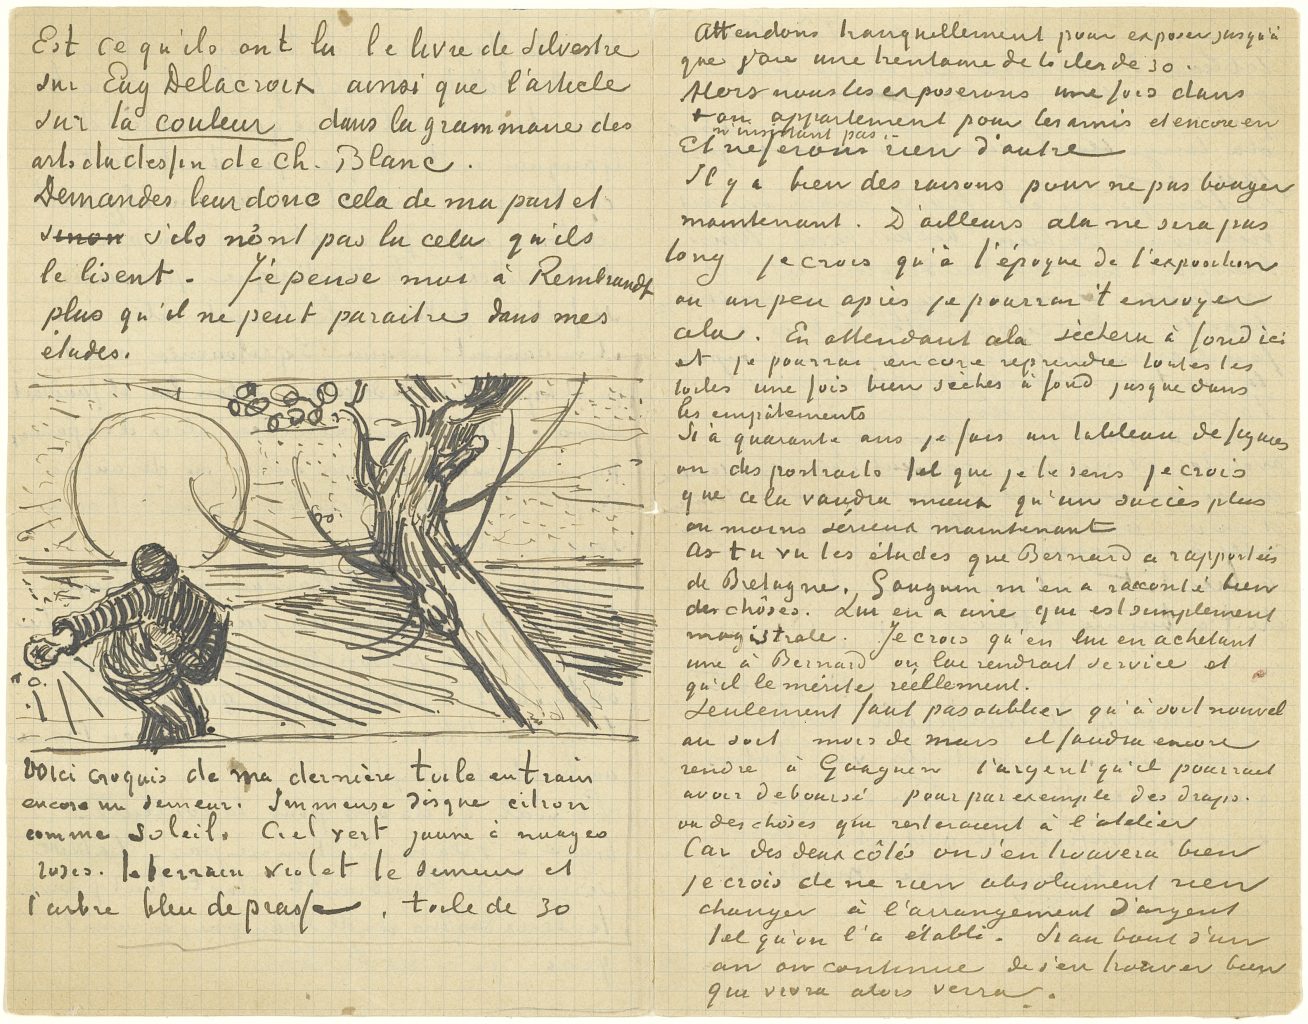 Est ce qu'ils ont lu le livre de Silvestre
sur Eug Delacroix ainsi que l'article
sur la couleur dans la grammaire des
arts du dessin de Ch. Blanc.
Demandes leur donc cela de ma part et
sinon s'ils n'ont pas lu cela qu'ils
le lisent. J'e pense moi à Rembrandt
plus qu'il ne peut paraitre dans mes
études.
Voici croquis de ma dernière toile en train
encore un semeur. Immense disque citron
comme soleil. Ciel vert jaune à nuages
roses. le terrain violet le semeur et
l'arbre bleu de prusse. toile de 30
Attendons tranquillement pour exposer jusqu'à
que j'aie une trentaine de toiles de 30.
Alors nous les exposerons une fois dans
ton appartement pour les amis et encore en
n'insistant pas.-
Et ne ferons rien d'autre
Il y a bien des raisons pour ne pas bouger
maintenant. D'ailleurs cela ne sera pas
long je crois qu'à l'époque de l'exposition
ou un peu après je pourrai t'envoyer
cela. En attendant cela séchera à fond ici
et je pourrai encore reprendre toutes les
toiles une fois bien sèches à fond jusque dans
les empâtements
Si à quarante ans je fais un tableau de figures
ou des portraits tel que je le sens je crois
que cela vaudra mieux qu'un succès plus
ou moins sérieux maintenant
As tu vu les études que Bernard a rapportées
de Bretagne, Gauguin m'en a raconté bien
des chôses. Lui en a une qui est simplement
magistrale. Je crois qu'en lui en achetant
une à Bernard on lui rendrait service et
qu'il le mérite réellement.
Seulement faut pas oublier qu'à soit nouvel
an soit mois de mars il faudra encore
rendre à Gauguin l'argent qu'il pourrait
avoir deboursé pour par exemple des draps.
ou des chôses qui resteraient à l'atelier
Car des deux côtés on s'en trouvera bien
je crois de ne rien absolument rien
changer à l'arrangement d'argent
tel qu'on l'a établi. Si au bout d'un
an on continue de s'en trouver bien
qui vivra alors verra.